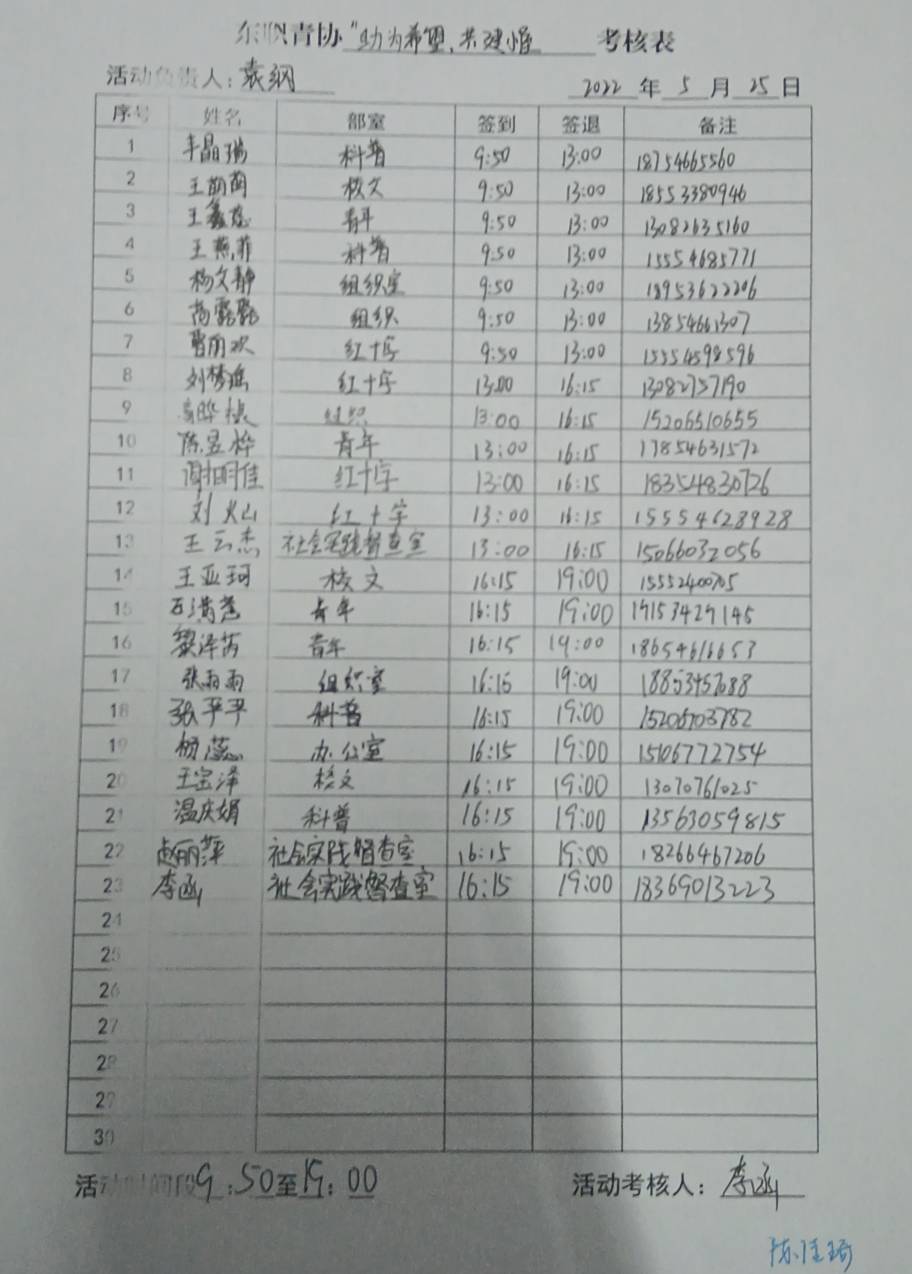 东职青协"助为希盟,共建惟 考核表
活动负责人:袁纲 2022 年 5 月 25 日
序号 姓名 部室 签到 签退 备注
1 丰晶瑞 科普 9:50 13:00 18754665560
2 王萌萌 校文 9:50 13:00 18553380946
3 王鑫慈 青年 9:50 13:00 13082635160
4 王燕菲 科普 9:50 13:00 15554685771
5 杨文静 组织室 9:50 13:00 18953622206
6 组织 9:50 13:00 13854661307
7 曹雨欢 红十字 9:50 13:00 15554598596
8 刘梦瑶 红十字 13:00 16:15 13082757190
9 组织 13:00 16:15 15206510655
10 陈昱桦 青年 13:00 16:15 17854631572
11 谢相佳 红十字 13:00 16:15 18354830726
12 刘火山 红十字 13:00 16:15 15554628928
13 王云杰 社会实践督查室 13:00 16:15 15066032056
14 王亚珂 校文 16:15 19:00
15 青年 16:15 19:00 19153429145
16 黎泽芮 青年 16:15 19:00 18654616653
17 张雨雨 组织室 16:15 19:00 18853457688
18 张平平 科普 16:15 19:00 15206703782
19 杨蕊 办公室 16:15 19:00 15106772754
20 王宝泽 校文 16:15 19:00 13070761025
21 温庆娟 科普 16:15 19:00 13563059815
22 赵丽萍 社会实践督查室 16:15 19:00 18266467206
23 李函 社会实践督查室 16:15 19:00 18369013223
24
25
26
27
28
29
30
活动时间段9:50至19:00 活动考核人:李函
陈佳琦